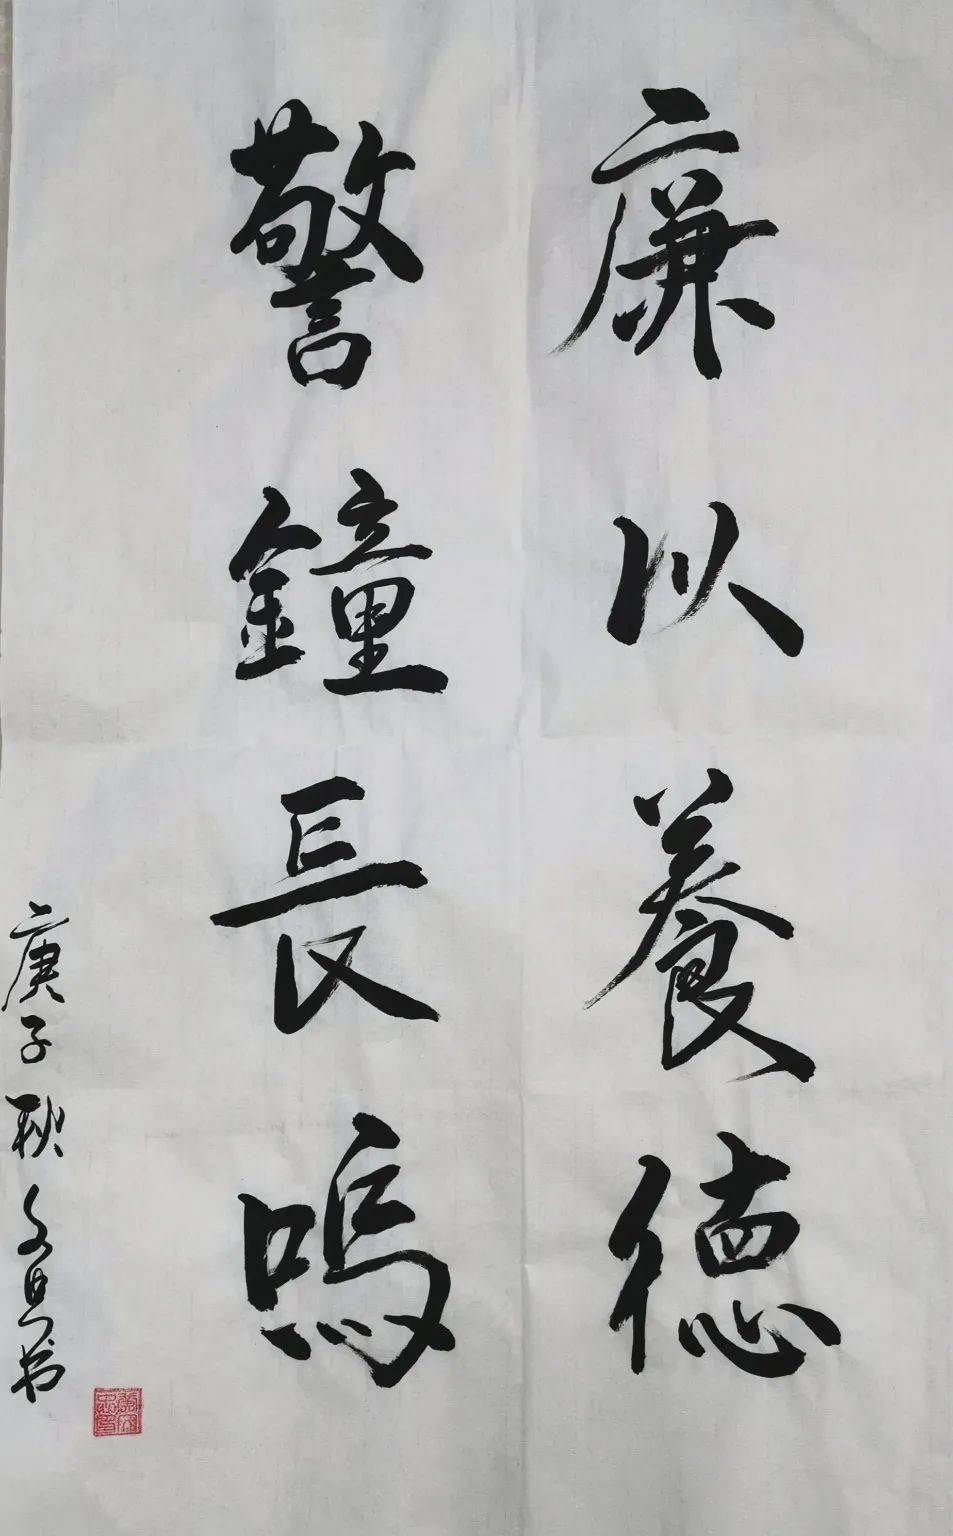 廉以養德
警鐘長鳴
庚子秋文書